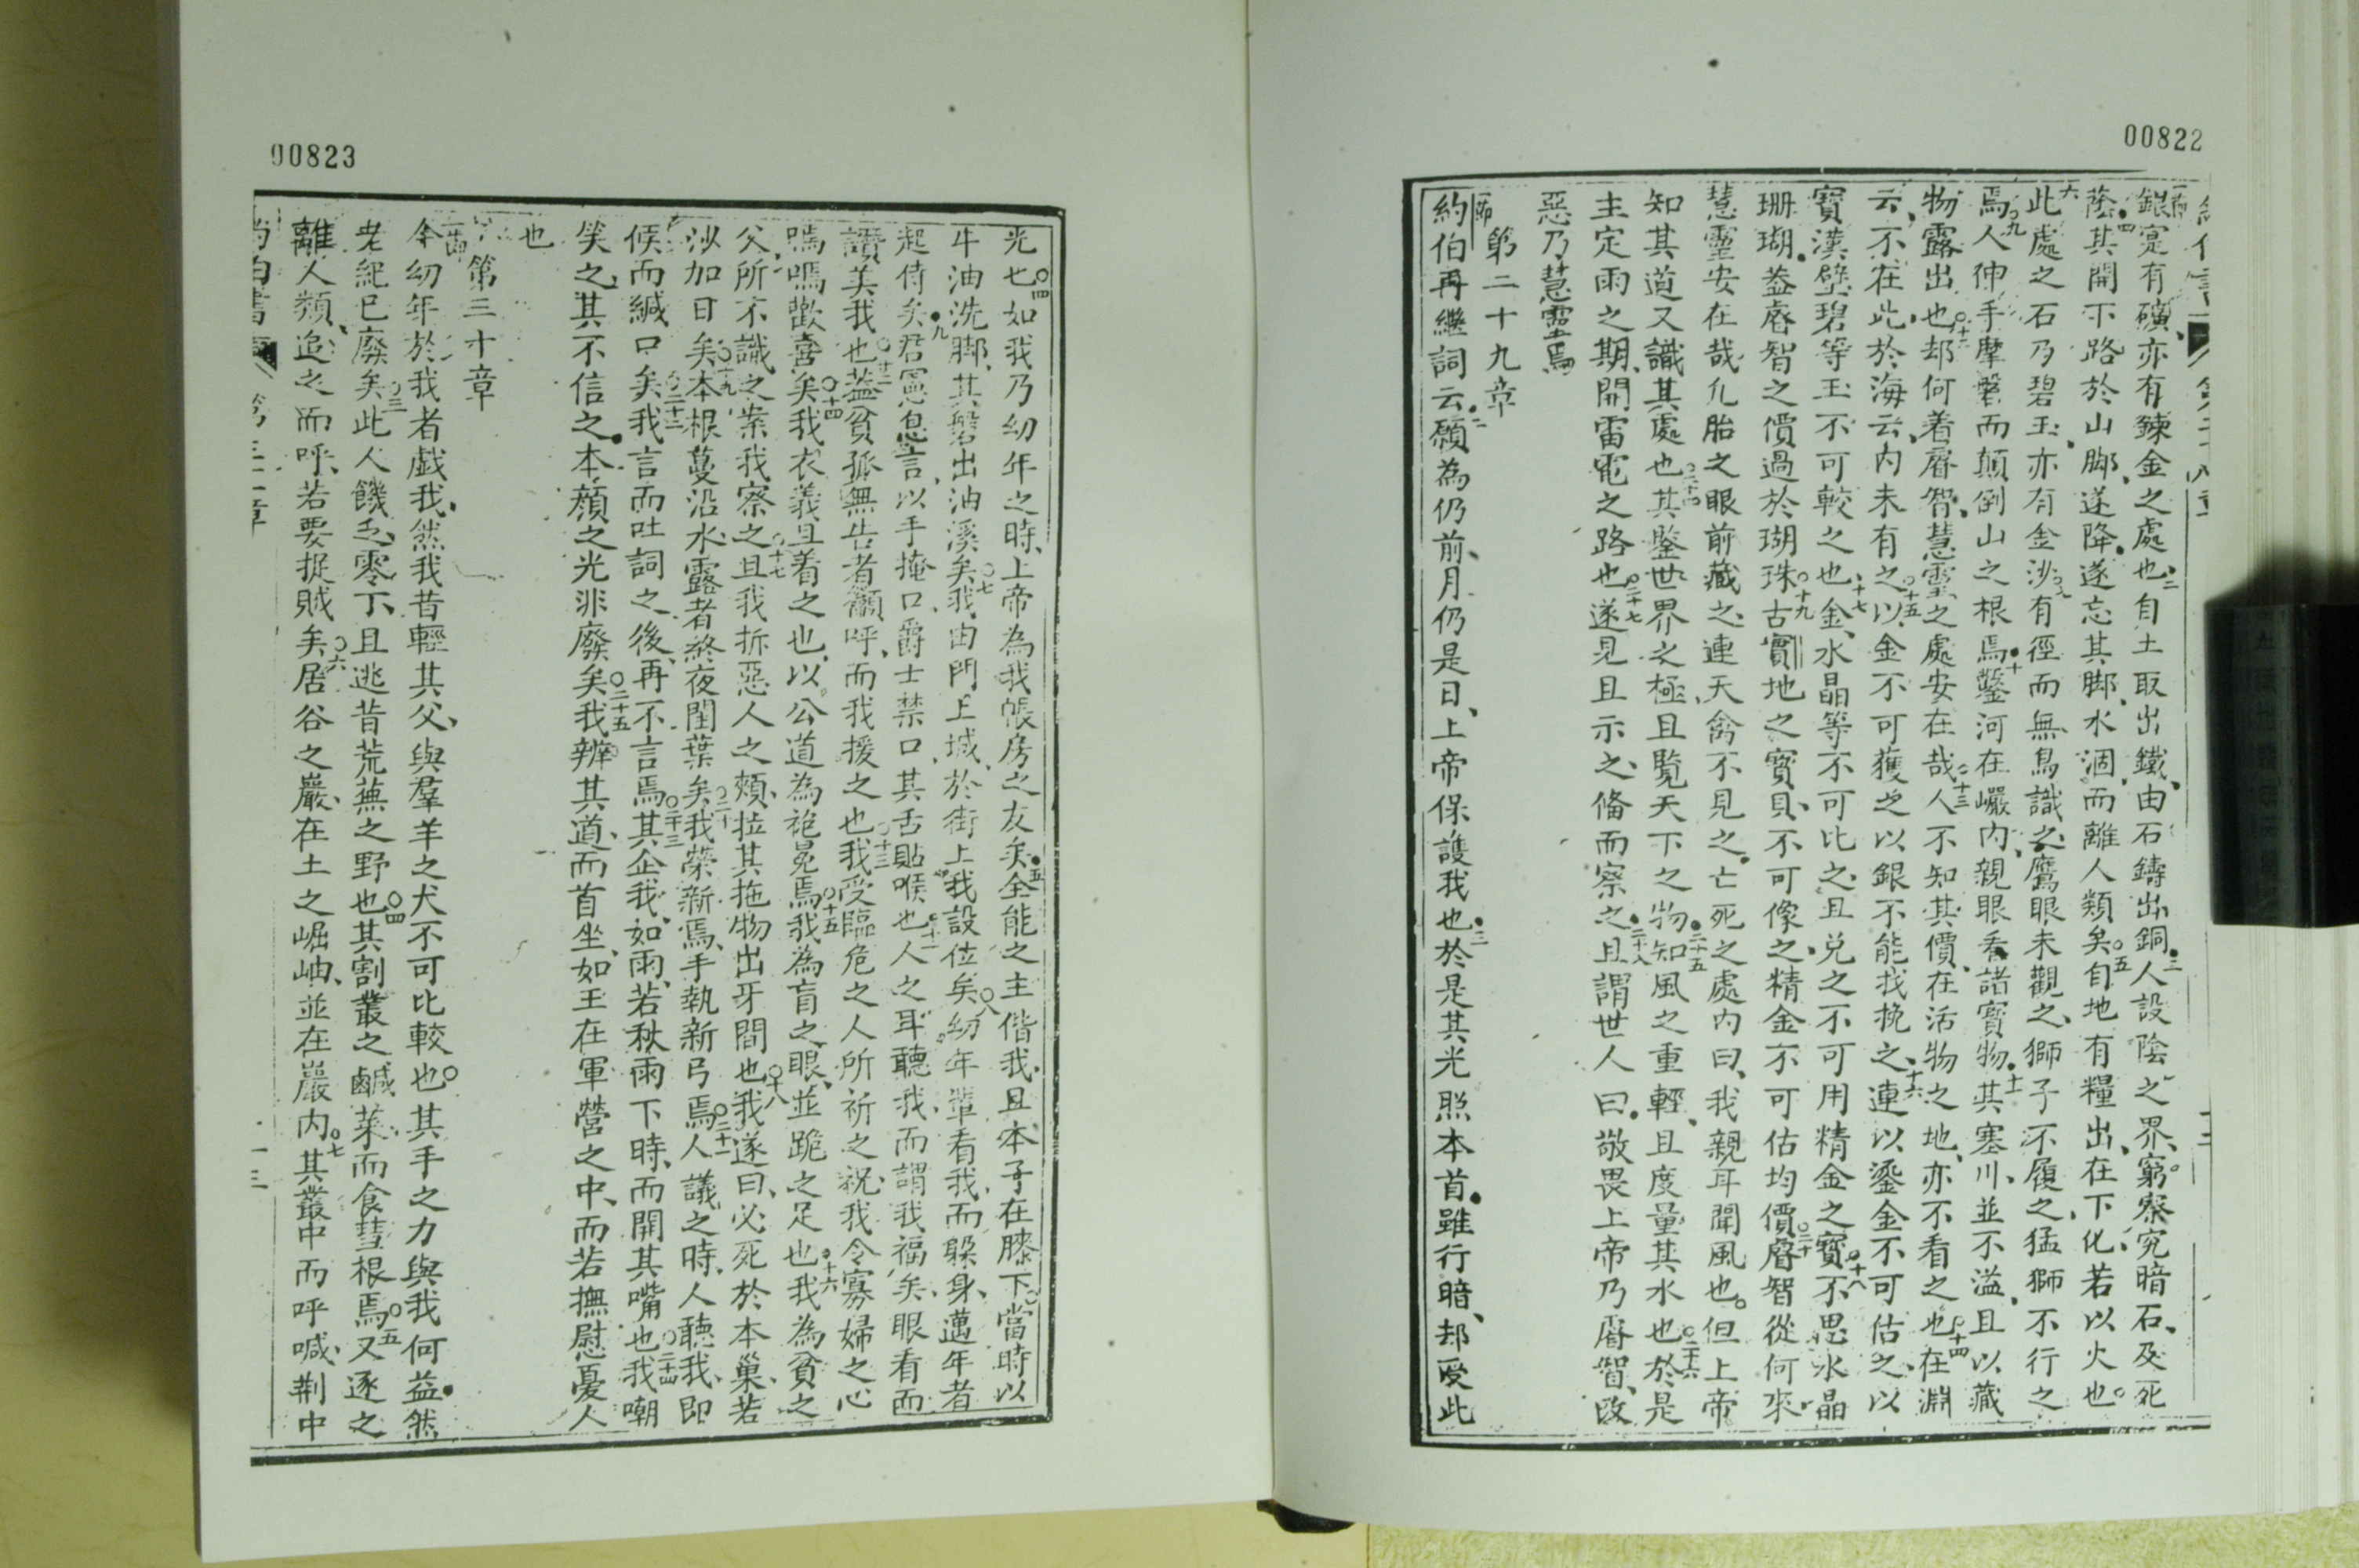 00822
銀寔有礦、亦有鍊金之處也、二自土取出鐵、由石鑄出銅、三人設陰之界、窮察究暗石、及死
蔭、四其開下路於山脚、遂降、遂忘其脚、水涸、而離人類矣、五自地有糧出、在下化、若以火也。
六此處之石乃碧玉、亦有金沙、有徑而無鳥識之、鷹眼未觀之、獅子不履之、猛獅不行之
焉、九人伸手摩磐而顛倒山之根焉、十鑿河在巖內、親眼看諸寶物、十一其塞川、並不溢、且以藏
物露出也、十二却何着睿智、慧靈之處安在哉、十三人不知其價、在活物之地、亦不看之也、十四在淵
云、不在此、於海云、內未有之、十五以金不可獲之、以銀不能找挽之、十六連以鎏金不可估之、以
寶漢璧碧等玉、不可較之也、十七金、水晶等不可比之、且兌之不可用精金之寶、十八不思水晶
珊瑚、蓋睿智之價過於瑚珠、十九古實地之寳貝、不可像之、精金不可估均價、二十睿智從何來、
慧靈安在哉、凡胎之眼前藏之、連天禽不見之、亡死之處內曰、我親耳聞風也。但上帝
知其道、又識其處也、二十四其鑒世界之極、且覽天下之物、二十五知風之重輕、且度量其水也、二十六於是
主定雨之期、開雷電之路也、二十七遂見且示之、俻而察之、二十八且謂世人曰、敬畏上帝乃睿智、改
惡乃慧靈焉
第二十九章
約伯再繼詞云、二願為仍前、月仍是日、上帝保護我也、三於是其光照本首、雖行暗、却受此
00823
光也、四如我乃幼年之時、上帝為我帳房之友矣、五全能之主偕我、且本子在膝下、當時以
牛油洗脚、其磐出油溪矣、七我由門上城、於街上我設位矣、八幼年輩看我、而躱身、邁年者
起侍矣、九君憲息言、以手掩口、爵士禁口、其舌貼喉也、十一人之耳聽我、而謂我福矣、眼看而
讚美我也、十二蓋貧孤無告者籲呼、而我援之也、十三我受臨危之人所祈之祝、我令寡婦之心
嗎嗎歡喜矣、十四我衣義且着之也、以公道為袍冕焉、十五我為盲之眼、並跪之足也、十六我為貧之
父、所不識之案我察之、十七且我拆惡人之頰、拉其拖物出牙間也、十八我遂曰、必死於本巢、若
沙加日矣、十九本根蔓沿水、露者終夜閏葉矣、二十我榮新焉、手執新弓焉、二十一人議之時、人聽我、即
候而緘口矣、二十二我言而吐詞之後、再不言焉、二十三其企我、如雨、若秋雨下時、而開其嘴也、二十四我嘲
笑之、其不信之、本顏之光非廢矣、二十五我辨其道、而首坐、如王在軍營之中、而若撫慰憂人
也
第三十章
今幼年於我者戯我、然我昔輕其父、與羣羊之犬不可比較也。其手之力與我何益、然
老紀已廢矣、三此人饑乏、零丁、且逃昔荒蕪之野也、四其割叢之鹹菜、而食彗根焉、五又逐之
離人類、追之而呼、若要捉賊矣、六居谷之巖、在土之崛岫、並在巖內、七其叢中而呼喊、荆中
約伯書 第三十章 十三